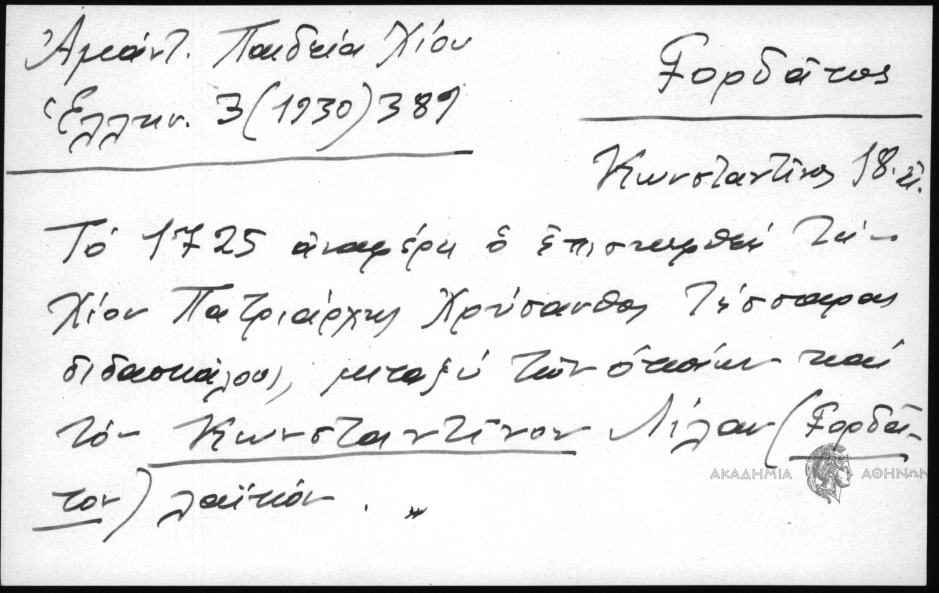 Ἀμάντ. Παιδεία Χίου
Ἑλλην. 3(1930)389
Γορδᾶτος
Κωνσταντῖνος 18. αἰ.
Τό 1725 ἀναφέρει ὁ ἐπισκεφθείς τήν
Χίον Πατριάρχης Χρύσανθος τέσσαρας
διδασκάλους, μεταξύ τῶν ὁποίων καί
τόν Κωνσταντῖνον (Γορδᾶ-
ΑΚΑΔΗΜΙΑ ΑΘΗΝΩΝ
τον) λαϊκόν.